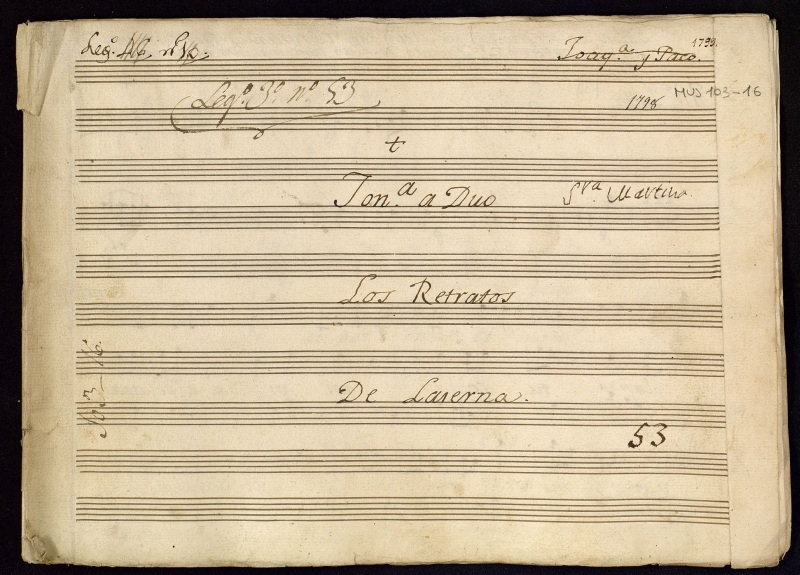 Leg.º
1799.
Joaq.ª y Paco.
Leg.º 3.º n.º 53
1798
MUS 103-16
+
Ton.ª a Duo
S.ra Martina.
Los Retratos
De Laserna.
103-16.
53